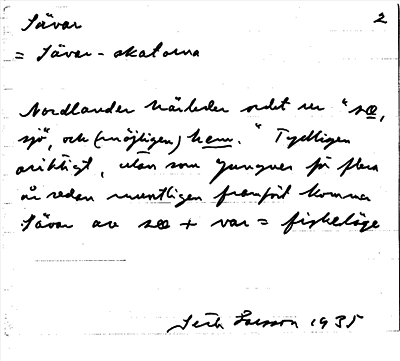 Sävar 2
= Sävar - skatorna
Nordlander härleder ordet ur "sæ,
sjö", och (möjligen) hem." Tydligen
oriktigt, utan som Jungner för flera
år sedan muntligen framfört komma
Sävar av sæ + var = fiskeläge
Larsson 1935